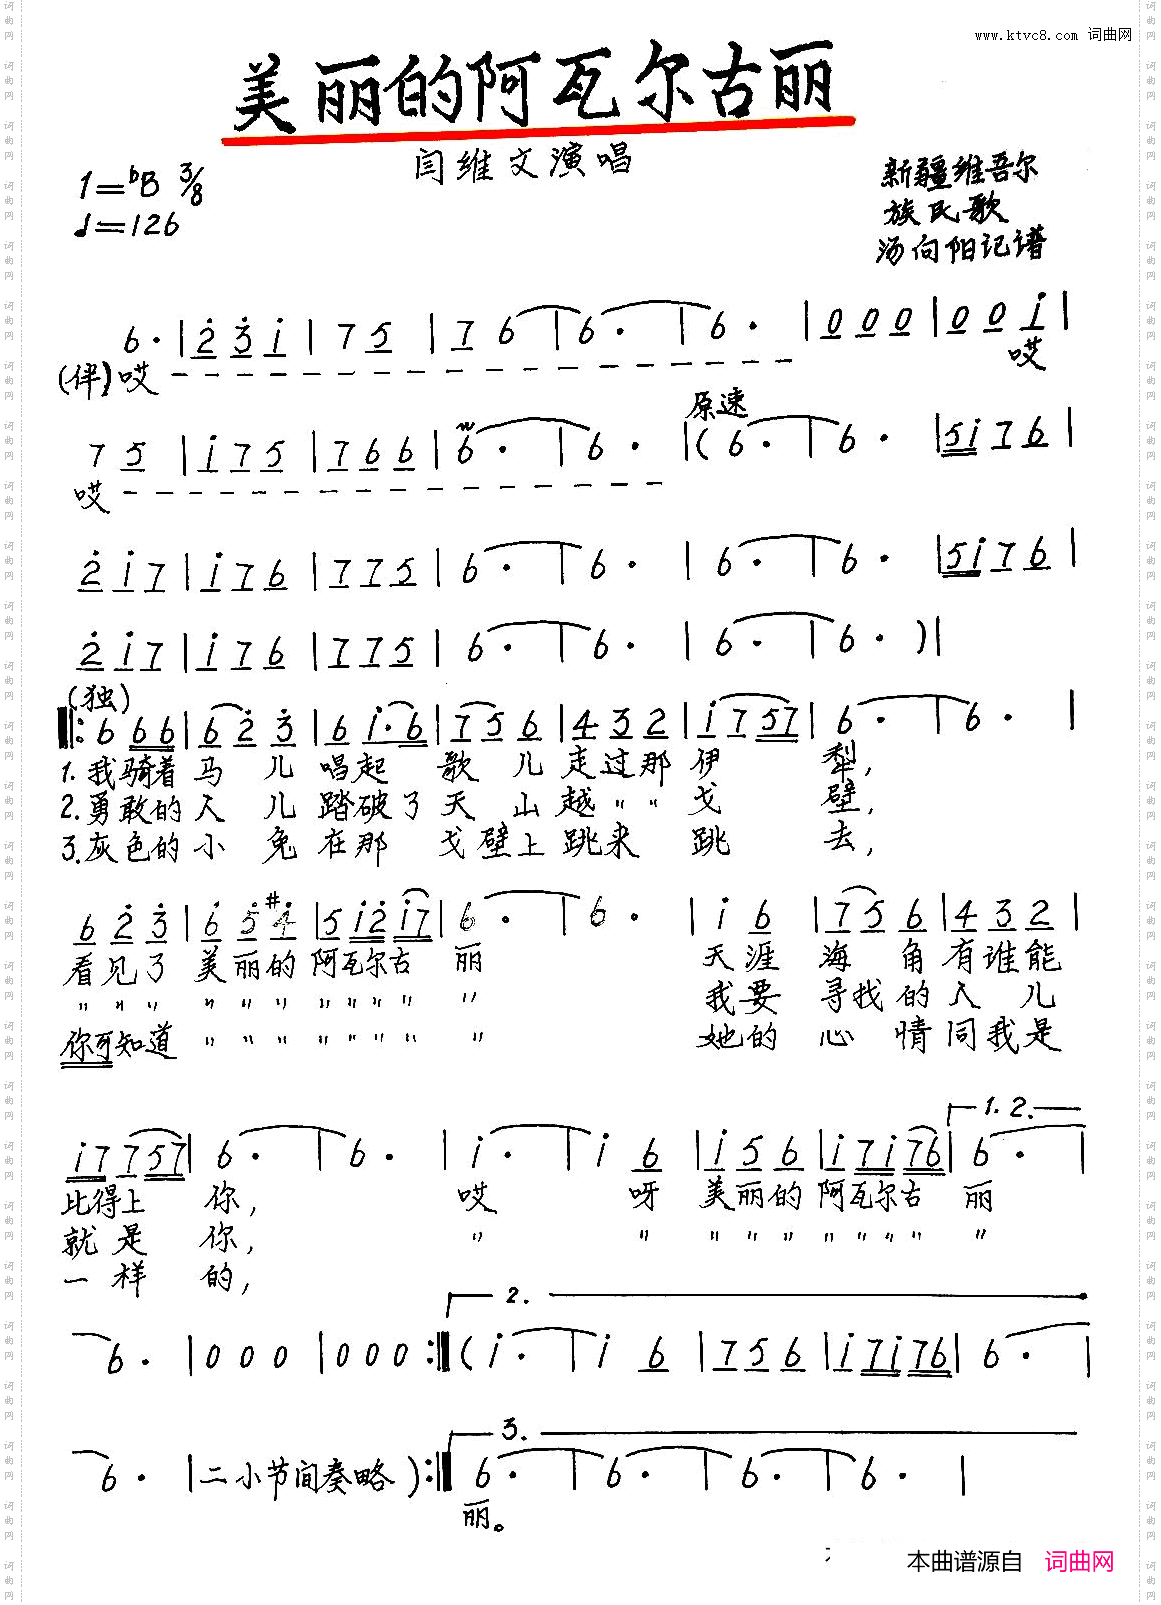 www.ktvc8.com 词曲网
美丽的阿瓦尔古丽
闫维文演唱
1=♭B 3/8
♩=126
新疆维吾尔
族民歌
汤向阳记谱
6·|2̇ 3̇ i|7 5|7 6|6·|6·|0 0 0|0 0 i|
(伴)哎 哎
原速
7 5|i 7 5|7 6 6|6·|6·|(6·|6·|5i 7 6|
哎
2̇ i 7|i 7 6|7 7 5|6·|6·|6·|6·|5i 7 6|
2̇ i 7|i 7 6|7 7 5|6·|6·|6·|6·)|
(独)
‖:6 66|6 2̇ 3̇|6 i·6|7 5 6|4 3 2|i 7 57|6·|6·|
1.我骑着马儿唱起歌儿走过那伊犁,
2.勇敢的人儿踏破了天山越〃〃戈壁,
3.灰色的小兔在那戈壁上跳来跳去,
6 2̇ 3̇|6 5 #4|5 i2̇ i7|6·|6·|i 6|7 5 6|4 3 2|
看见了美丽的阿瓦尔古丽 天涯海角有谁能
〃〃〃〃〃〃〃〃〃〃〃 我要寻找的人儿
你可知道〃〃〃〃〃〃〃〃 她的心情同我是
1.2.
i7 7 57|6·|6·|i·|i 6|i 5 6|i 7i 76|6·|
比得上你, 哎呀美丽的阿瓦尔古丽
就是你, 〃〃〃〃〃〃〃〃〃〃
一样的,
2.
6·|0 0 0|0 0 0:‖(i·|i 6|7 5 6|i 7i 76|6·|
3.
6·|二小节间奏略):‖6·|6·|6·|6·|
丽。
本曲谱源自 词曲网
词曲网